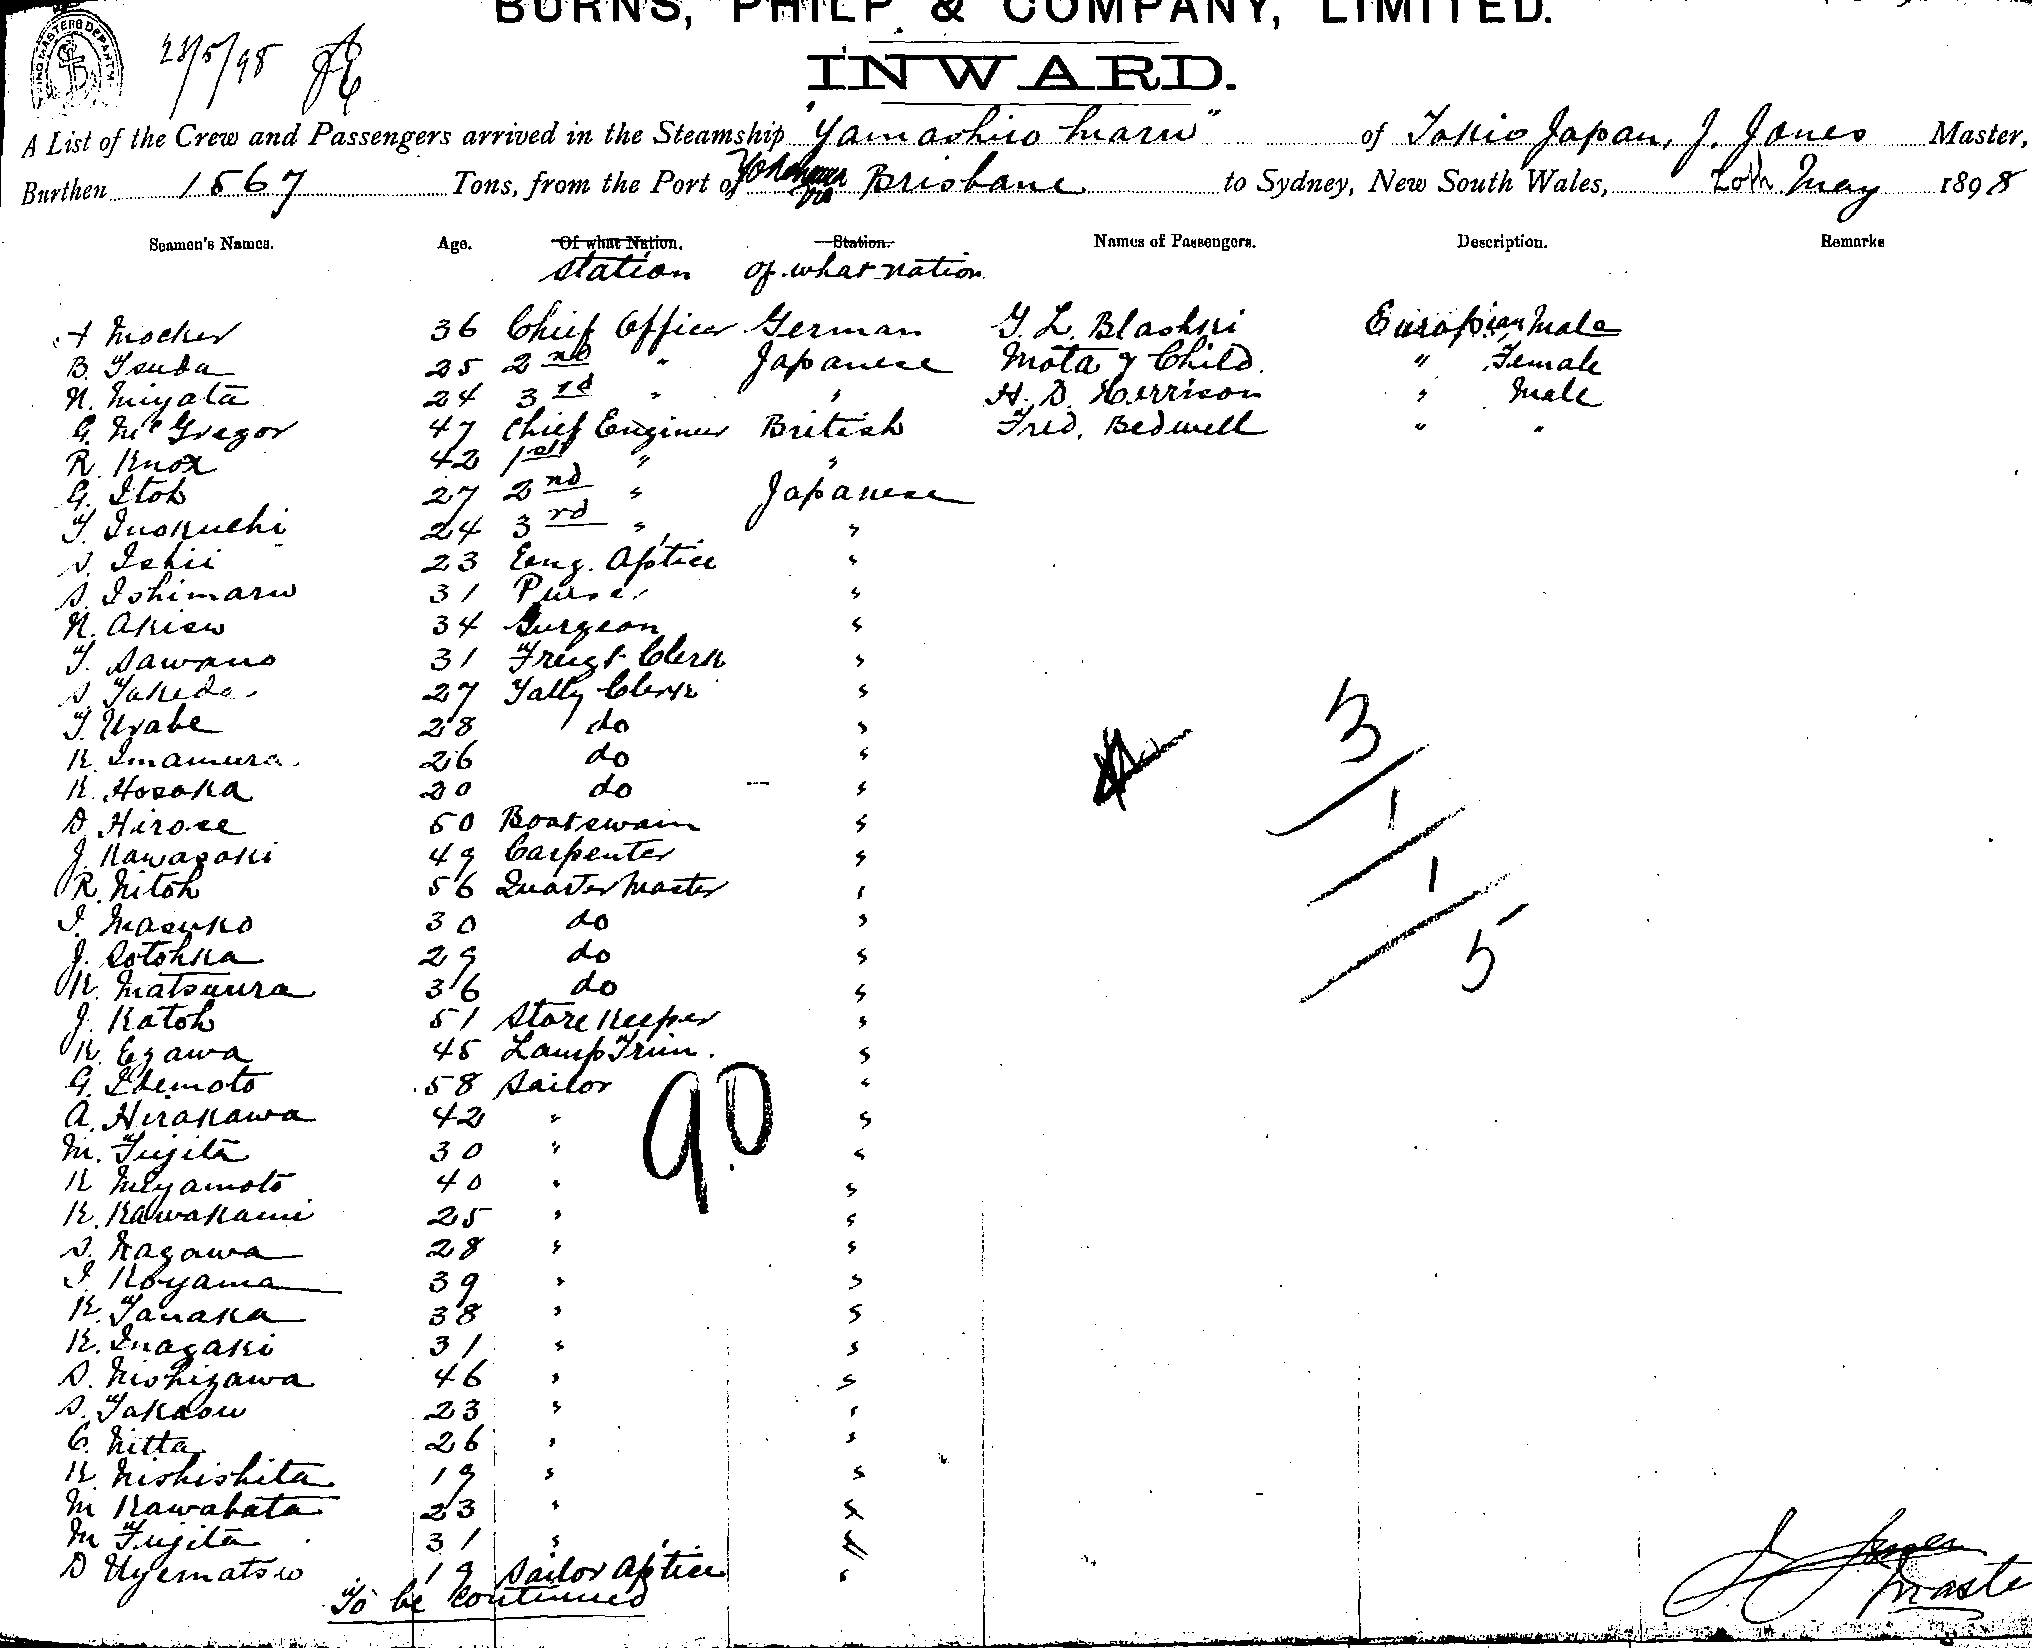 BURNS, PHILP & COMPANY, LIMITED.
INWARD.
23/5/98
A List of the Crew and Passengers arrived in the Steamship "Yamashiro Maru" of Tokio Japan, J. Jones Master,
Burthen 1567 Tons, from the Port of Yokohama via Brisbane to Sydney, New South Wales, 20th May 1898
Seamen's Names. Age. Of what Nation. Station. Names of Passengers. Description. Remarks
Station of what nation
Mocker 36 Chief Officer German G. L. Blashki European Male
B. Tsuda 25 2nd " Japanese Mota & Child. " Female
N. Miyata 24 3rd " " H. D. Herrison " Male
G. McGregor 47 Chief Engineer British Fred. Bedwell " "
R. Knox 42 1st " "
G. Itoh 27 2nd " Japanese
T. Inokuchi 24 3rd " "
S. Ishii 23 Eng. Aptice "
S. Ishimaru 31 Purser "
N. Akisu 34 Surgeon "
T. Sawano 31 Freigt Clerk "
S. Takeda 27 Tally Clerk "
T. Urabe 28 do "
K. Imamura 26 do "
K. Hosoka 20 do "
D. Hirose 50 Boatswain "
J. Kawasaki 49 Carpenter "
R. Nitoh 56 Quarter Master "
I. Masuko 30 do "
J. Sotohka 29 do "
K. Matsuura 36 do "
J. Katoh 51 Store Keeper "
K. Egawa 45 Lamp Trim. "
G. Idemoto 58 Sailor "
A. Hirakawa 42 " "
M. Fujita 30 " "
K. Miyamoto 40 " "
K. Kawakami 25 " "
S. Nagawa 28 " "
I. Koyama 39 " "
K. Tanaka 38 " "
K. Inagaki 31 " "
S. Nishizawa 46 " "
S. Takaow 23 " "
C. Nitta 26 " "
K. Nishishita 19 " "
M Kawabata 23 " "
M Fujita 31 " "
D Uyematsu 19 Sailor Aptice "
To be Continued
90
3
1
1
5
J. Jones
Master